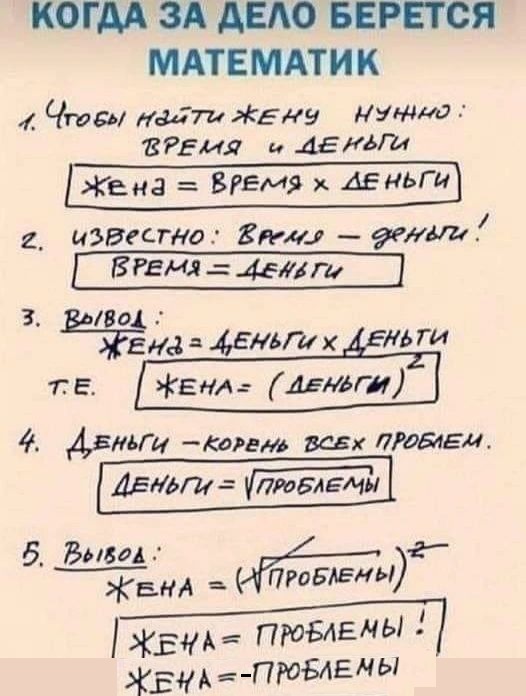 КОГДА ЗА ДЕЛО БЕРЕТСЯ
МАТЕМАТИК
1. Чтобы найти жену нужно:
ВРЕМЯ и ДЕНЬГИ
Жена = ВРЕМЯ x ДЕНЬГИ
2. известно: Время – деньги!
ВРЕМЯ = ДЕНЬГИ
3. Вывод:
ЖЕНА = ДЕНЬГИ x ДЕНЬГИ
Т.Е. ЖЕНА = (ДЕНЬГИ)²
4. ДЕНЬГИ – КОРЕНЬ ВСЕХ ПРОБЛЕМ.
ДЕНЬГИ = √ПРОБЛЕМЫ
5. Вывод:
ЖЕНА = (√ПРОБЛЕМЫ)²
ЖЕНА = ПРОБЛЕМЫ!
ЖЕНА=-ПРОБЛЕМЫ